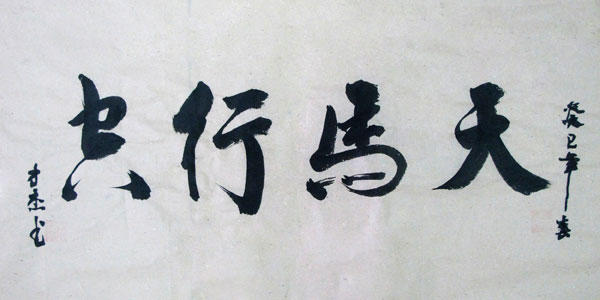 癸巳年春
天馬行空